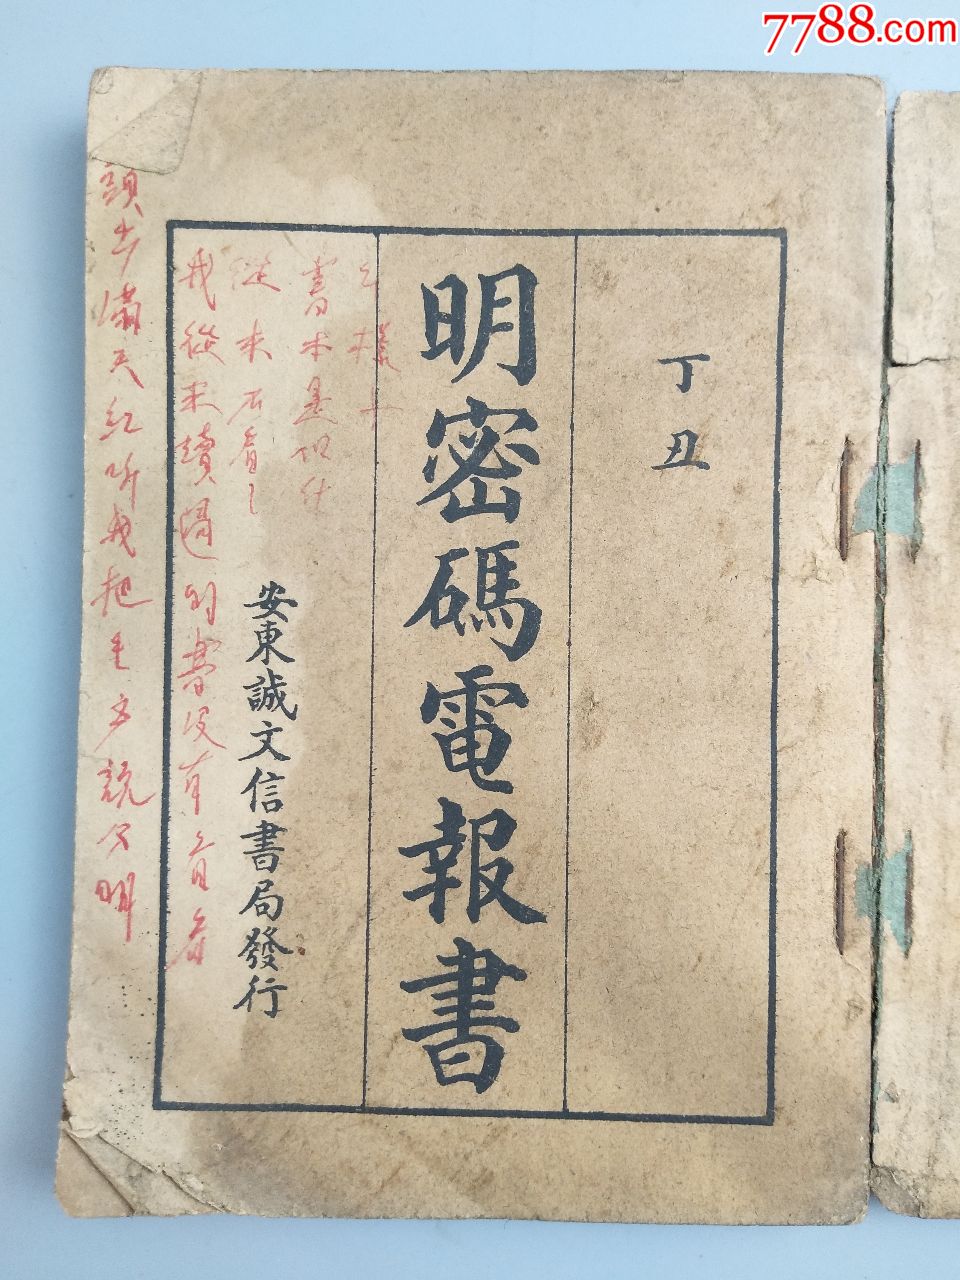 7788.com
丁丑
明密碼電報書
安東誠文信書局發行
書本是
從未看
我從未讀過的書沒有看看
滿天紅听我把 說分明